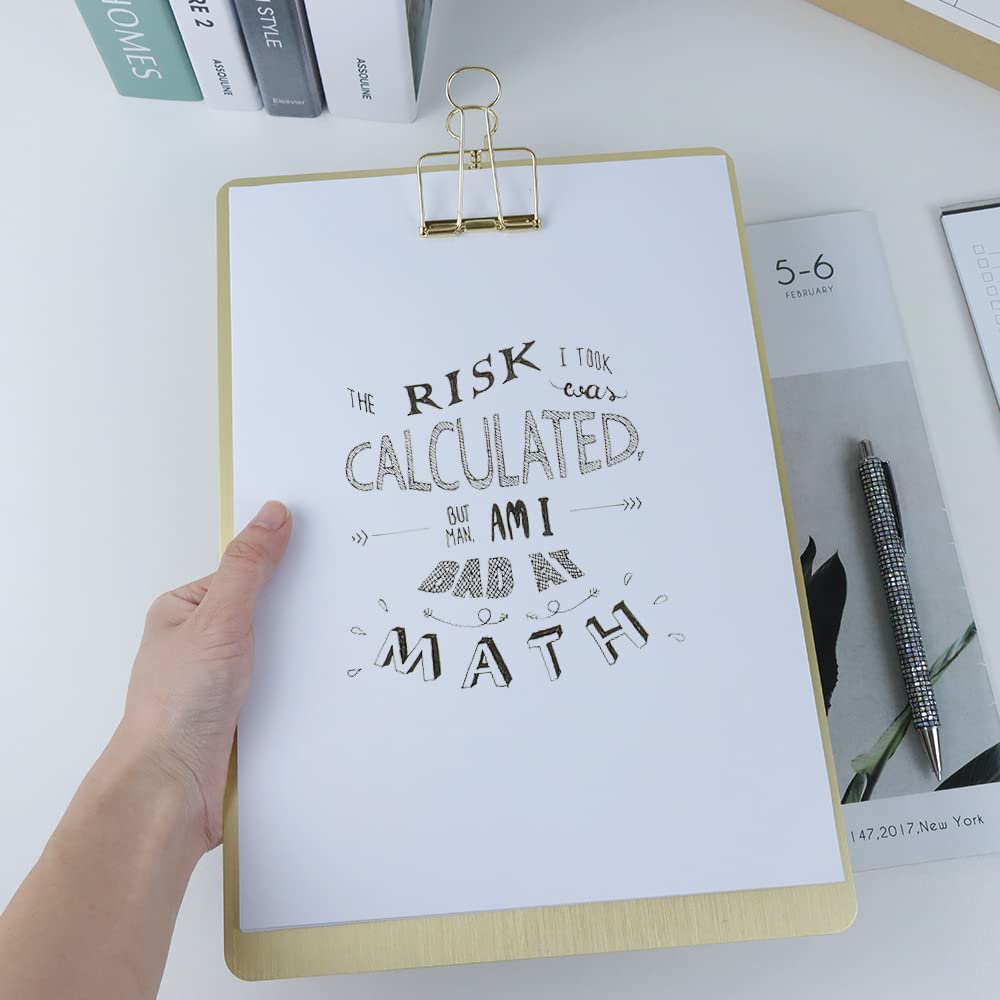 HOMES
RE 2
ASSOULINE
STYLE
Elsevier
ASSOULINE
5-6
FEBRUARY
THE RISK I TOOK
was
CALCULATED,
BUT
MAN, AM I
BAD AT
MATH
147,2017,New York